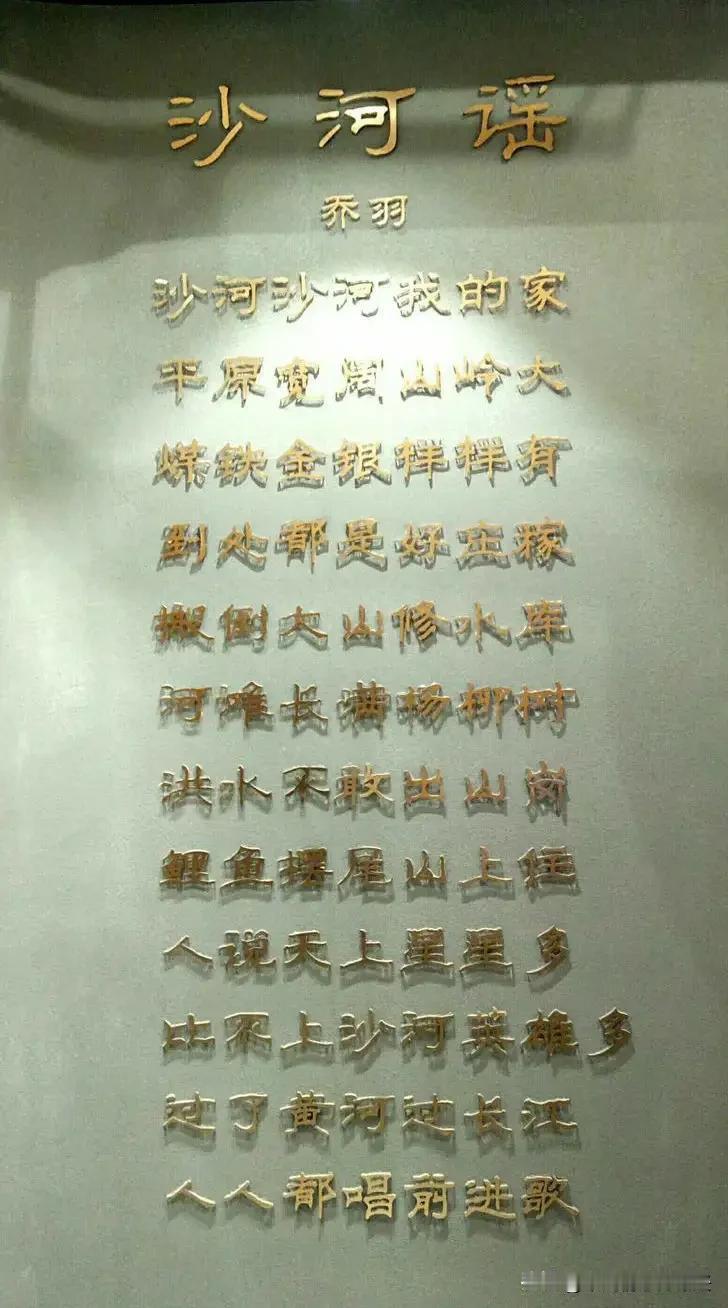 沙河谣
乔羽
沙河沙河我的家
平原宽阔山岭大
煤铁金银样样有
到处都是好庄稼
搬倒大山修水库
河滩长满杨柳树
洪水不敢出山岗
鲤鱼摆尾山上住
人说天上星星多
比不上沙河英雄多
过了黄河过长江
人人都唱前进歌